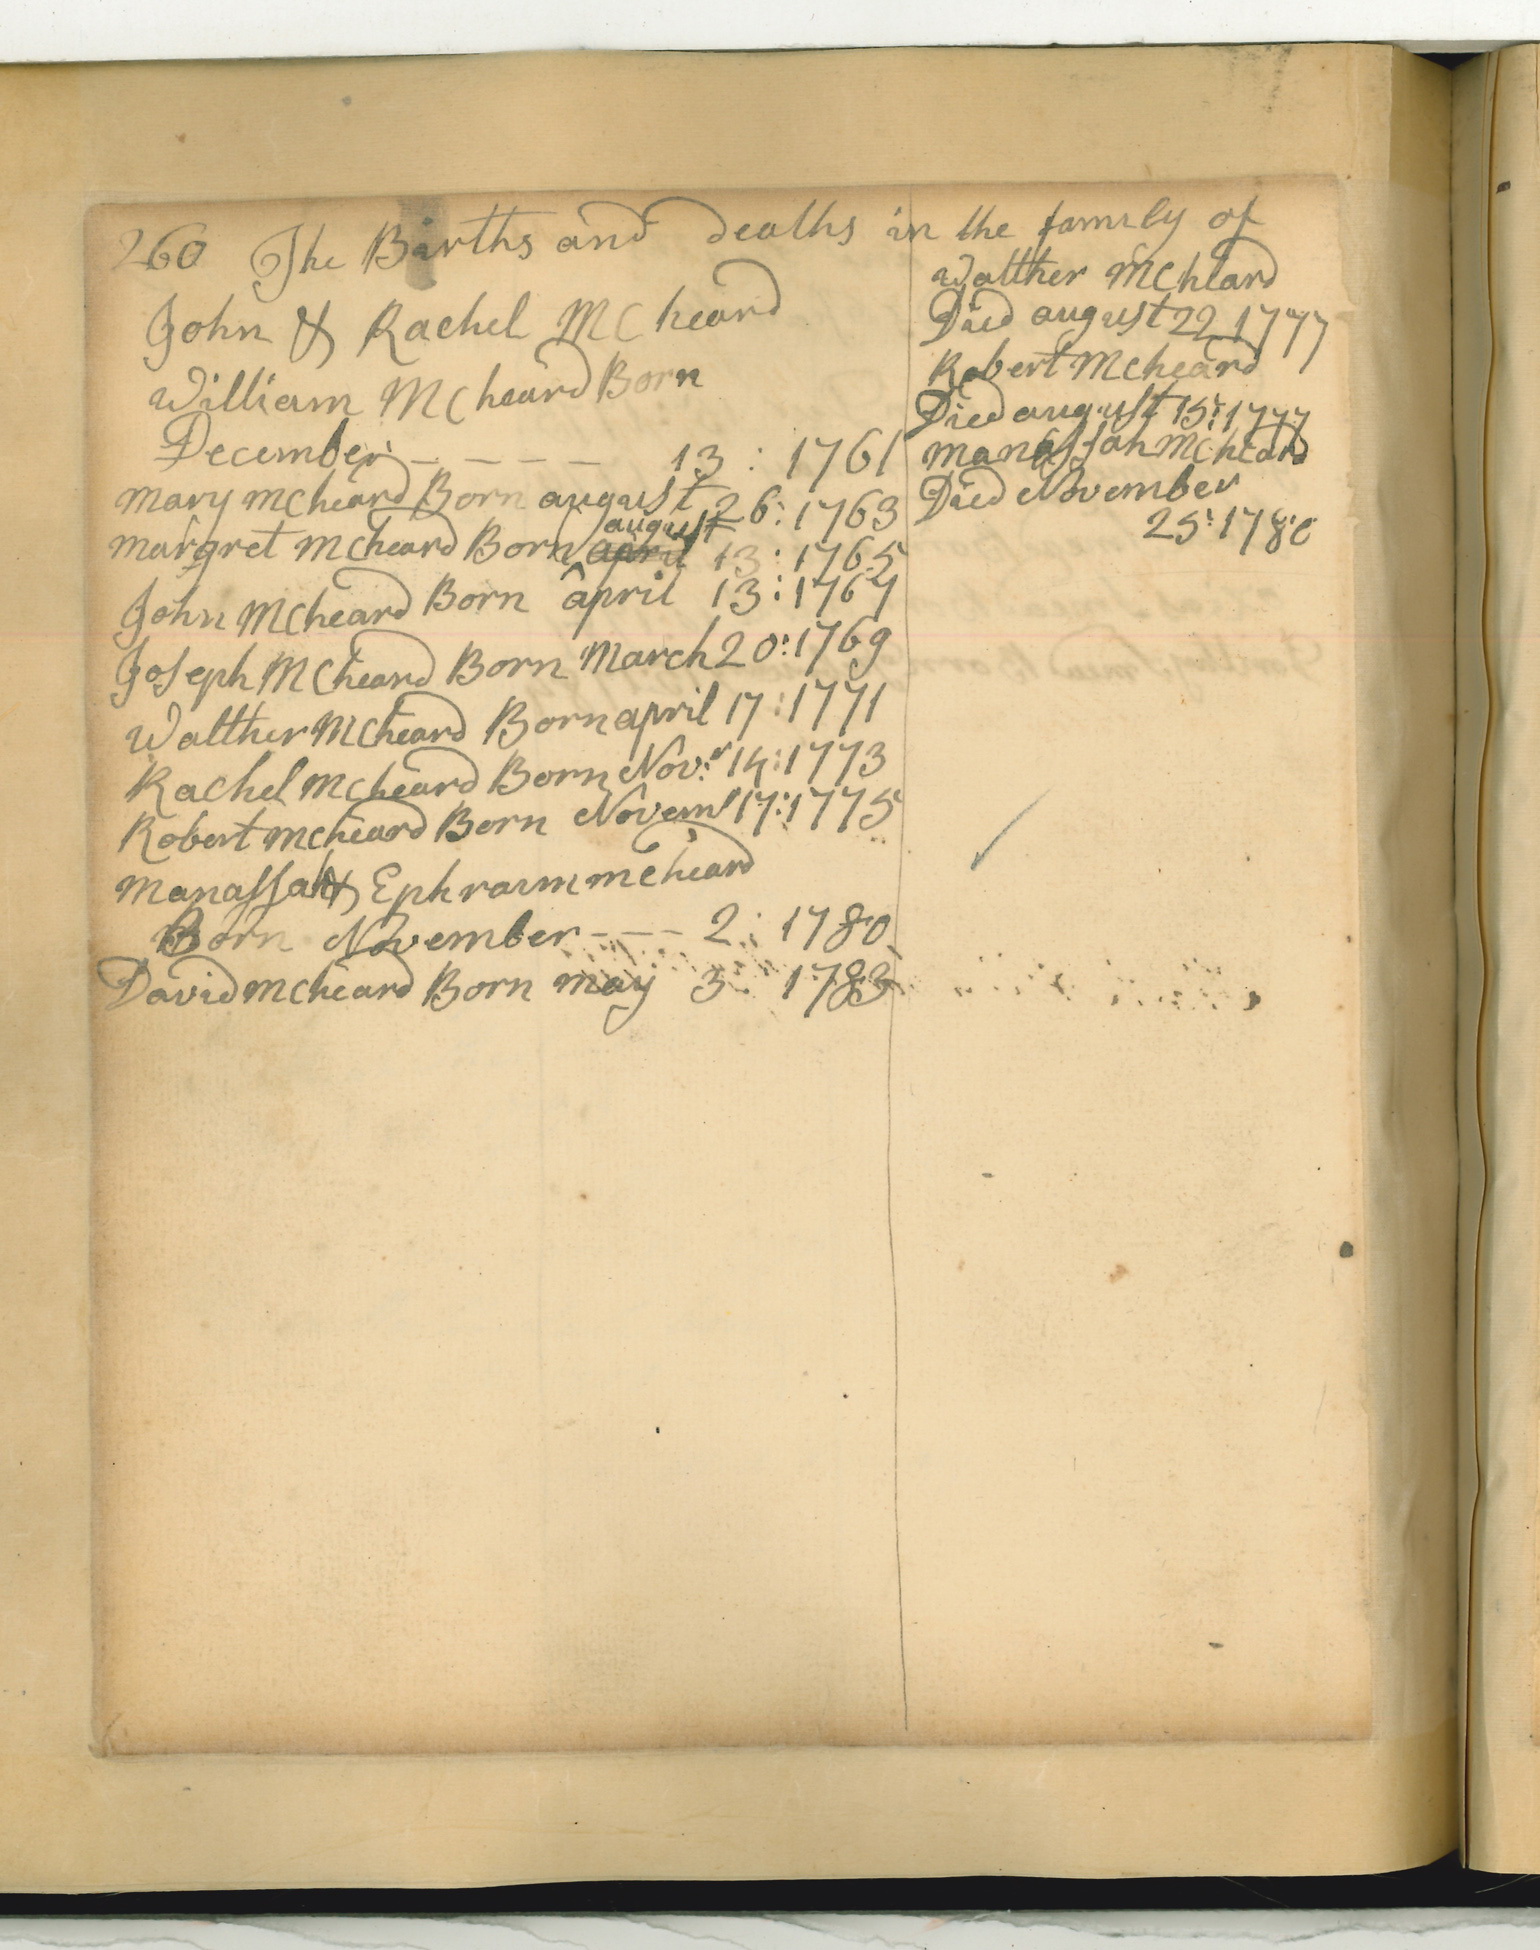 260 The Births and deaths in the family of
John & Rachel McCheard
William McCheard Born
December - - - - - 13 : 1761
mary mcheard Born august 26 : 1763
august
margret mcheard Born april 13 : 1765
John Mcheard Born april 13 : 1767
Joseph Mcheard Born March 20 : 1769
Walther Mcheard Born april 17 : 1771
Rachel Mcheard Born Nov.r 14 : 1773
Robert mcheard Born Novemr 17 : 1775
manassah & Ephraim mcheard
Born November - - - 2 : 1780
David mcheard Born may 3 : 1783
Walther McHeard
Died august 22 1777
Robert Mcheard
Died august 15 : 1777
manassah Mcheard
Died November
25 : 1780